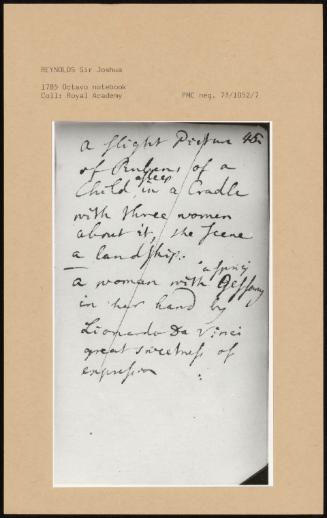 REYNOLDS Sir Joshua
1785 Octavo notebook
Coll: Royal Academy
PMC neg. 78/1052/7
a slight Picture 45.
of Rubens of a
Child asleep in a Cradle
with three women
about it, the scene
a landskip.
a woman with a sprig Jessamy
in her hand by
Lionardo Da Vinci
great sweetness of
expression